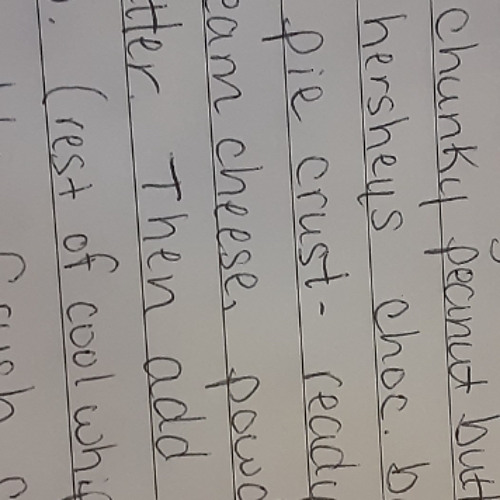 chunky peanut but
hersheys choc. b
pie crust- ready
eam cheese, powd
tter. Then add
. (rest of cool whi